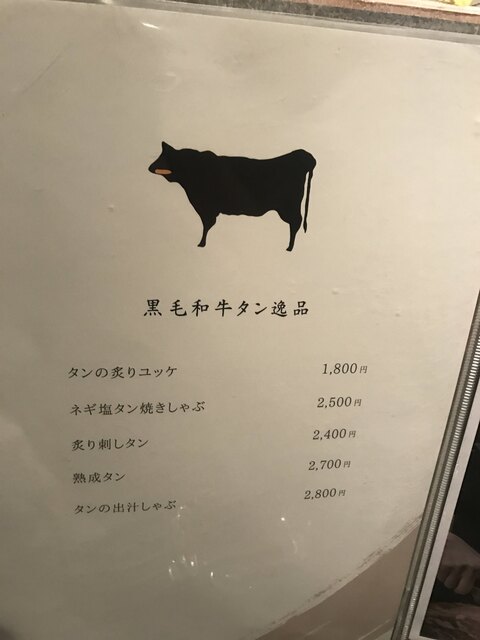 黒毛和牛タン逸品
タンの炙りユッケ 1,800円
ネギ塩タン焼きしゃぶ 2,500円
炙り刺しタン 2,400円
熟成タン 2,700円
タンの出汁しゃぶ 2,800円